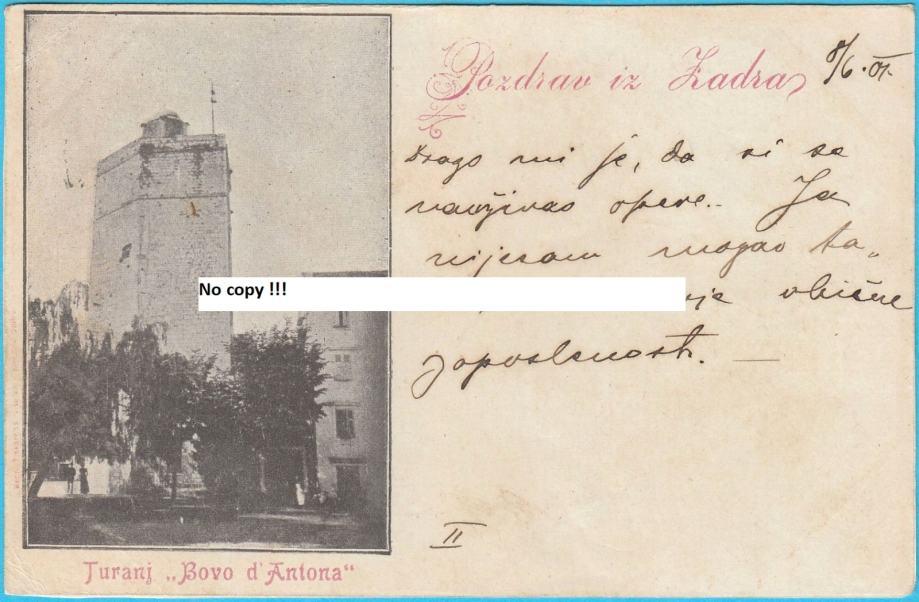 Pozdrav iz Zadra
8/6. 01.
Drago mi je, da si se
nauživao opere. Ja
nijesam mogao ta„
No copy !!!
obične
zaposlenosti. —
II
Turanj „Bovo d'Antona“